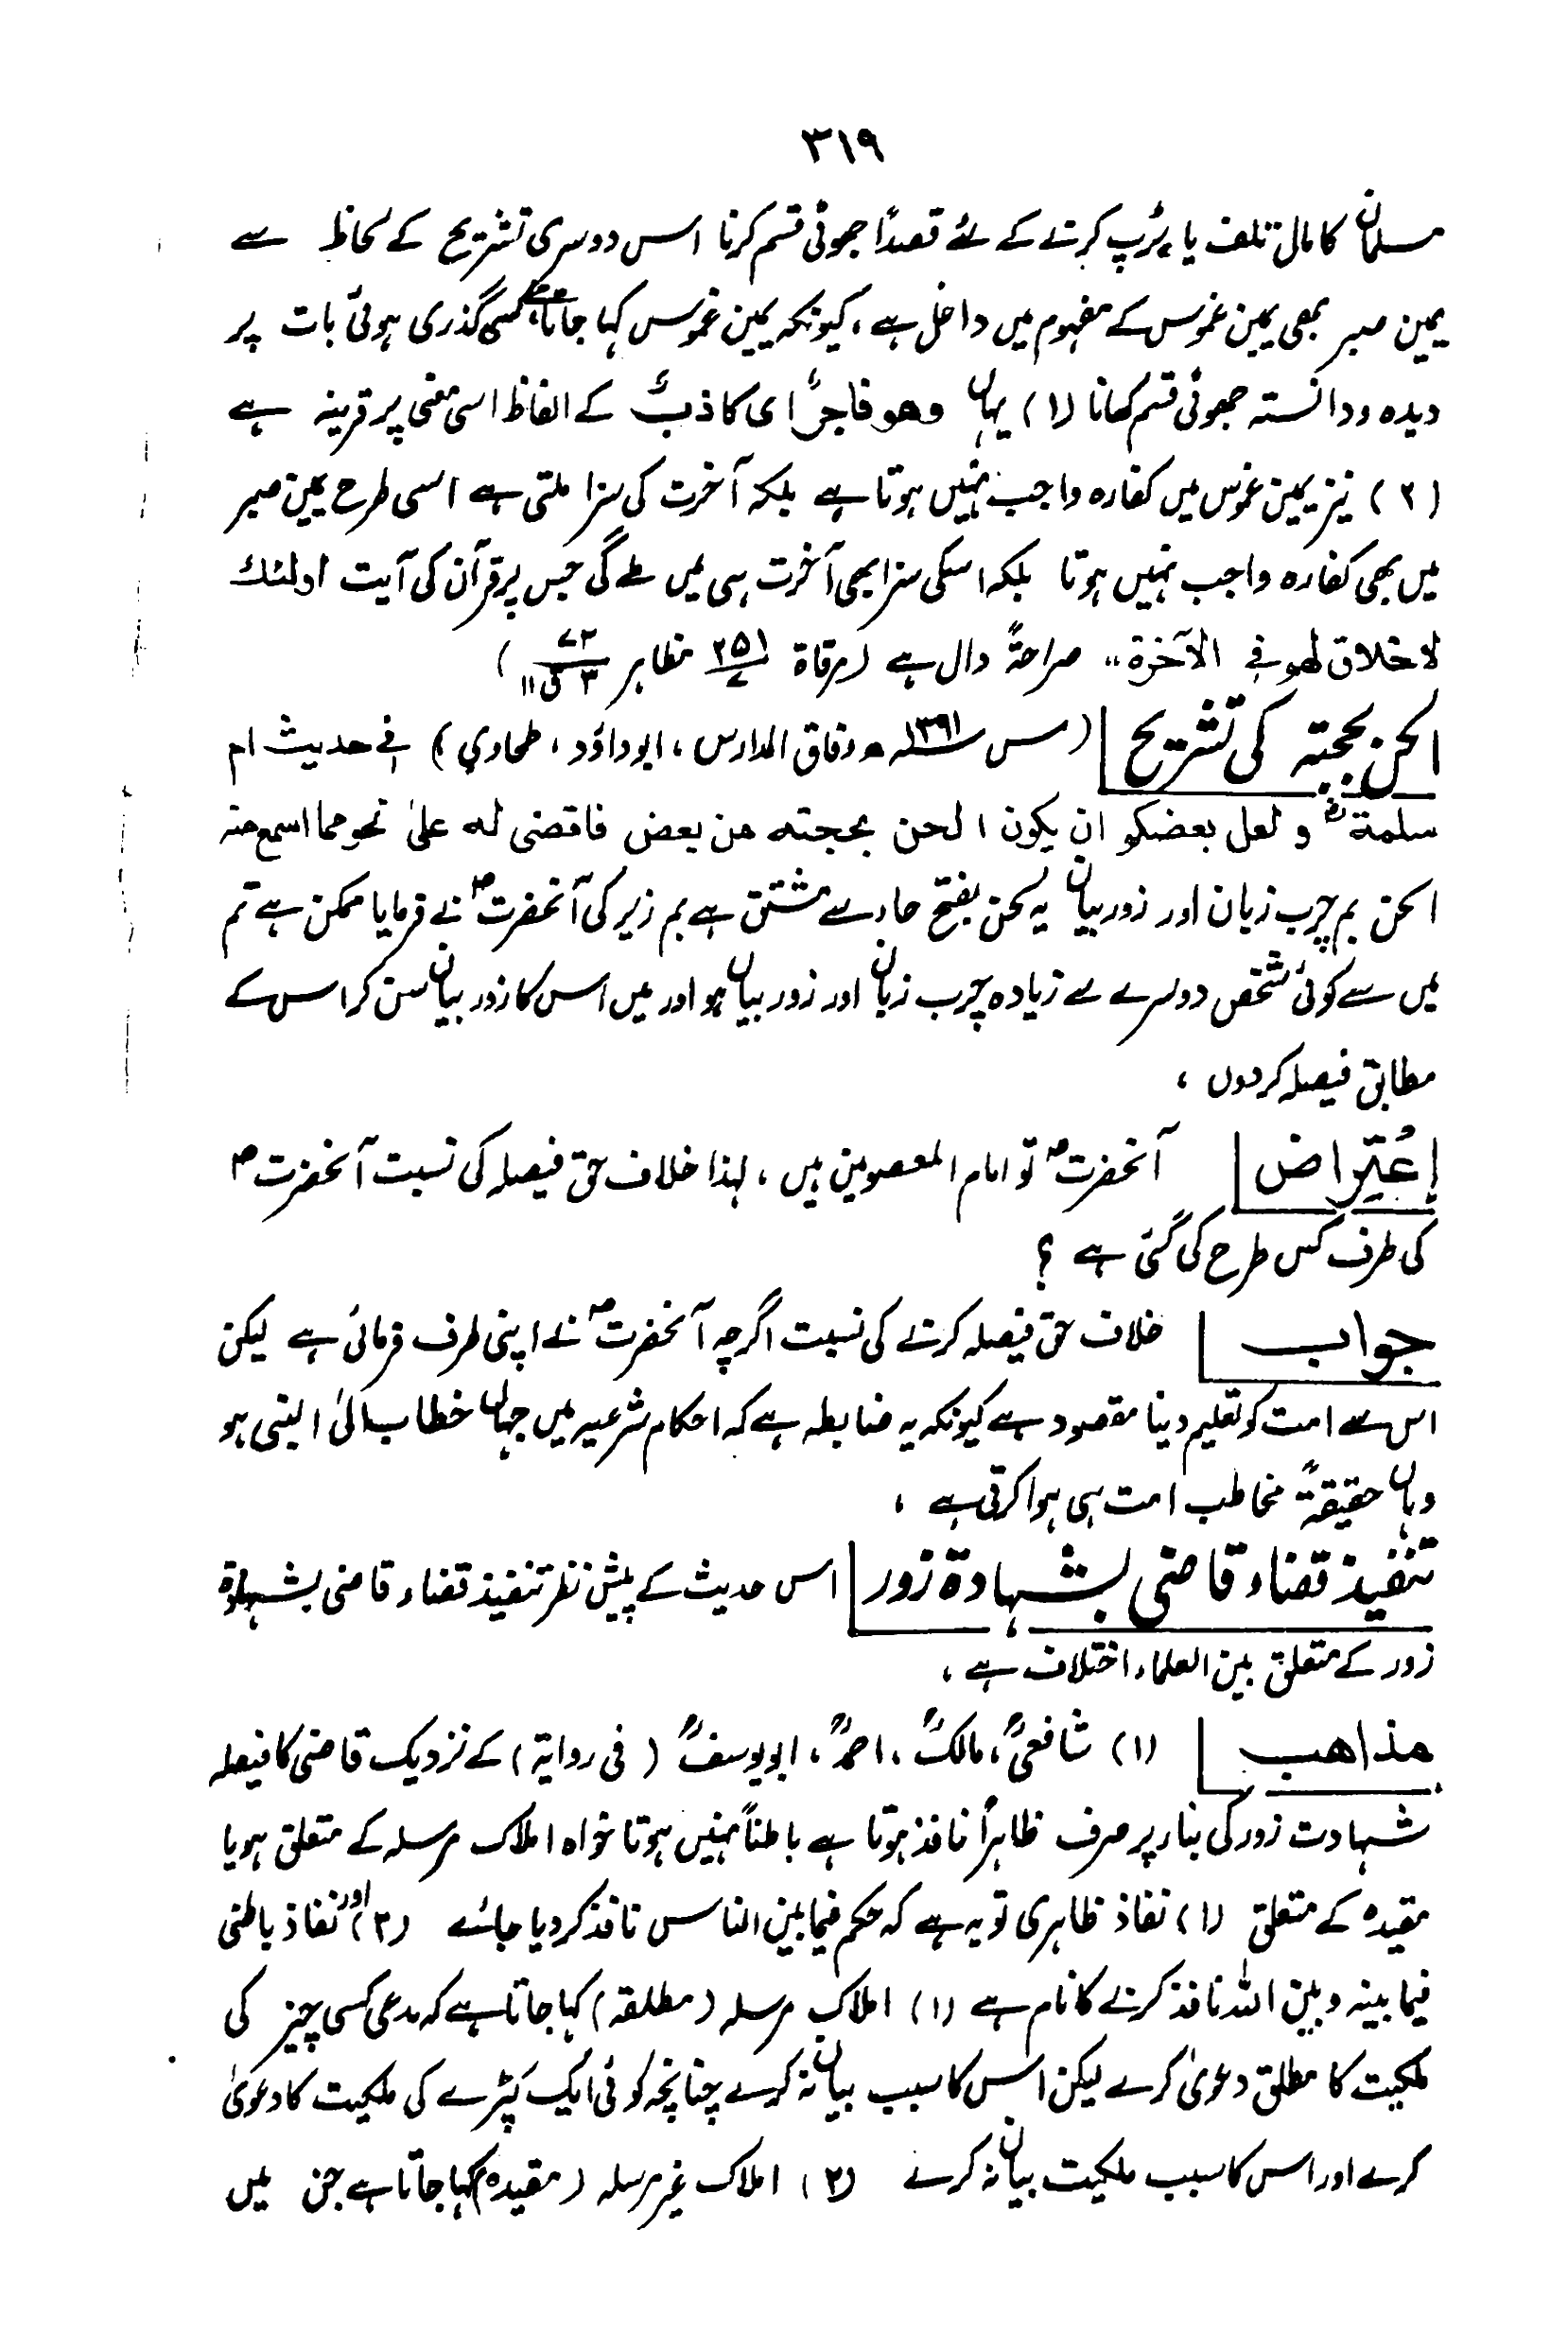 ۳۱۹
مسلمان کا مال تلف یا ہڑپ کرنے کے لئے قصداً جھوٹی قسم کرنا اس دوسری تشریح کے لحاظ سے
یمین صبر بھی یمین غموس کے مفہوم میں داخل ہے ، کیونکہ یمین غموس کہا جاتا ہے کسی گذری ہوئی بات پر
دیدہ ودانستہ جھوٹی قسم کھانا (۱) یہاں وھو فاجرٌ ای کاذبٌ کے الفاظ اسی معنی پر قرینہ ہے
(۲) نیز یمین غموس میں کفارہ واجب نہیں ہوتا ہے بلکہ آخرت کی سزا ملتی ہے اسی طرح یمین صبر
میں بھی کفارہ واجب نہیں ہوتا بلکہ اسکی سزا بھی آخرت ہی میں ملے گی جس پر قرآن کی آیت اولئك
لا خلاق لهم في الآخرة ،، صراحةً دال ہے (مرقاۃ ۲۵۱/۷ مظاہر
الحن بحجتہ کی تشریح (س ۱۳۹۱ھ وفاق المدارس ، ابوداؤد ، طحاوي) في حديث ام
سلمةؓ و لعل بعضكم ان يكون الحن بحجته من بعض فاقضى له علىٰ نحو مما اسمع منه
الحن بم چرب زبان اور زور بیان یہ لحن بفتح حاء سے مشتق ہے بم زیرکی آنحضرتؐ نے فرمایا ممکن ہے تم
میں سے کوئی شخص دوسرے سے زیادہ چرب زبان اور زور بیاں ہو اور میں اس کا زور بیان سن کر اس کے
مطابق فیصلہ کردوں ،
اِعُتِرَاض آنحضرتؐ تو امام المعصومین ہیں ، لہذا خلاف حق فیصلہ کی نسبت آنحضرتؐ
کی طرف کس طرح کی گئی ہے ؟
جواب خلاف حق فیصلہ کرنے کی نسبت اگرچہ آنحضرتؐ نے اپنی طرف فرمائی ہے لیکن
اس سے امت کو تعلیم دینا مقصود ہے کیونکہ یہ ضابطہ ہے کہ احکام شرعیہ میں جہاں خطاب الیٰ النبی ہو
وہاں حقیقۃً مخاطب امت ہی ہوا کرتی ہے ،
تنفیذ قضاء قاضی بشہادۃ زور اس حدیث کے پیش نظر تنفیذ قضاء قاضی بشہادۃ
زور کے متعلق بین العلماء اختلاف ہے ،
مذاهب (۱) شافعیؒ، مالکؒ ، احمدؒ ، ابویوسفؒ (فی روایۃ) کے نزدیک قاضی کا فیصلہ
شہادت زور کی بناء پر صرف ظاہراً نافذ ہوتا ہے باطناً نہیں ہوتا خواہ املاک مرسلہ کے متعلق ہو یا
مقیدہ کے متعلق (۱) نفاذ ظاہری تو یہ ہے کہ حکم فیما بین الناس نافذ کردیا جائے (۲) اور نفاذ باطنی
فیما بینہ وبین اللہ نافذ کرنے کا نام ہے (۱) املاک مرسلہ (مطلقہ) کہا جاتا ہے کہ مدعی کسی چیز کی
ملکیت کا مطلق دعویٰ کرے لیکن اس کا سبب بیان نہ کرے چنانچہ کوئی ایک کپڑے کی ملکیت کا دعویٰ
کرے اور اس کا سبب ملکیت بیان نہ کرے (۲) املاک غیر مرسلہ (مقیدہ) کہا جاتا ہے جن میں